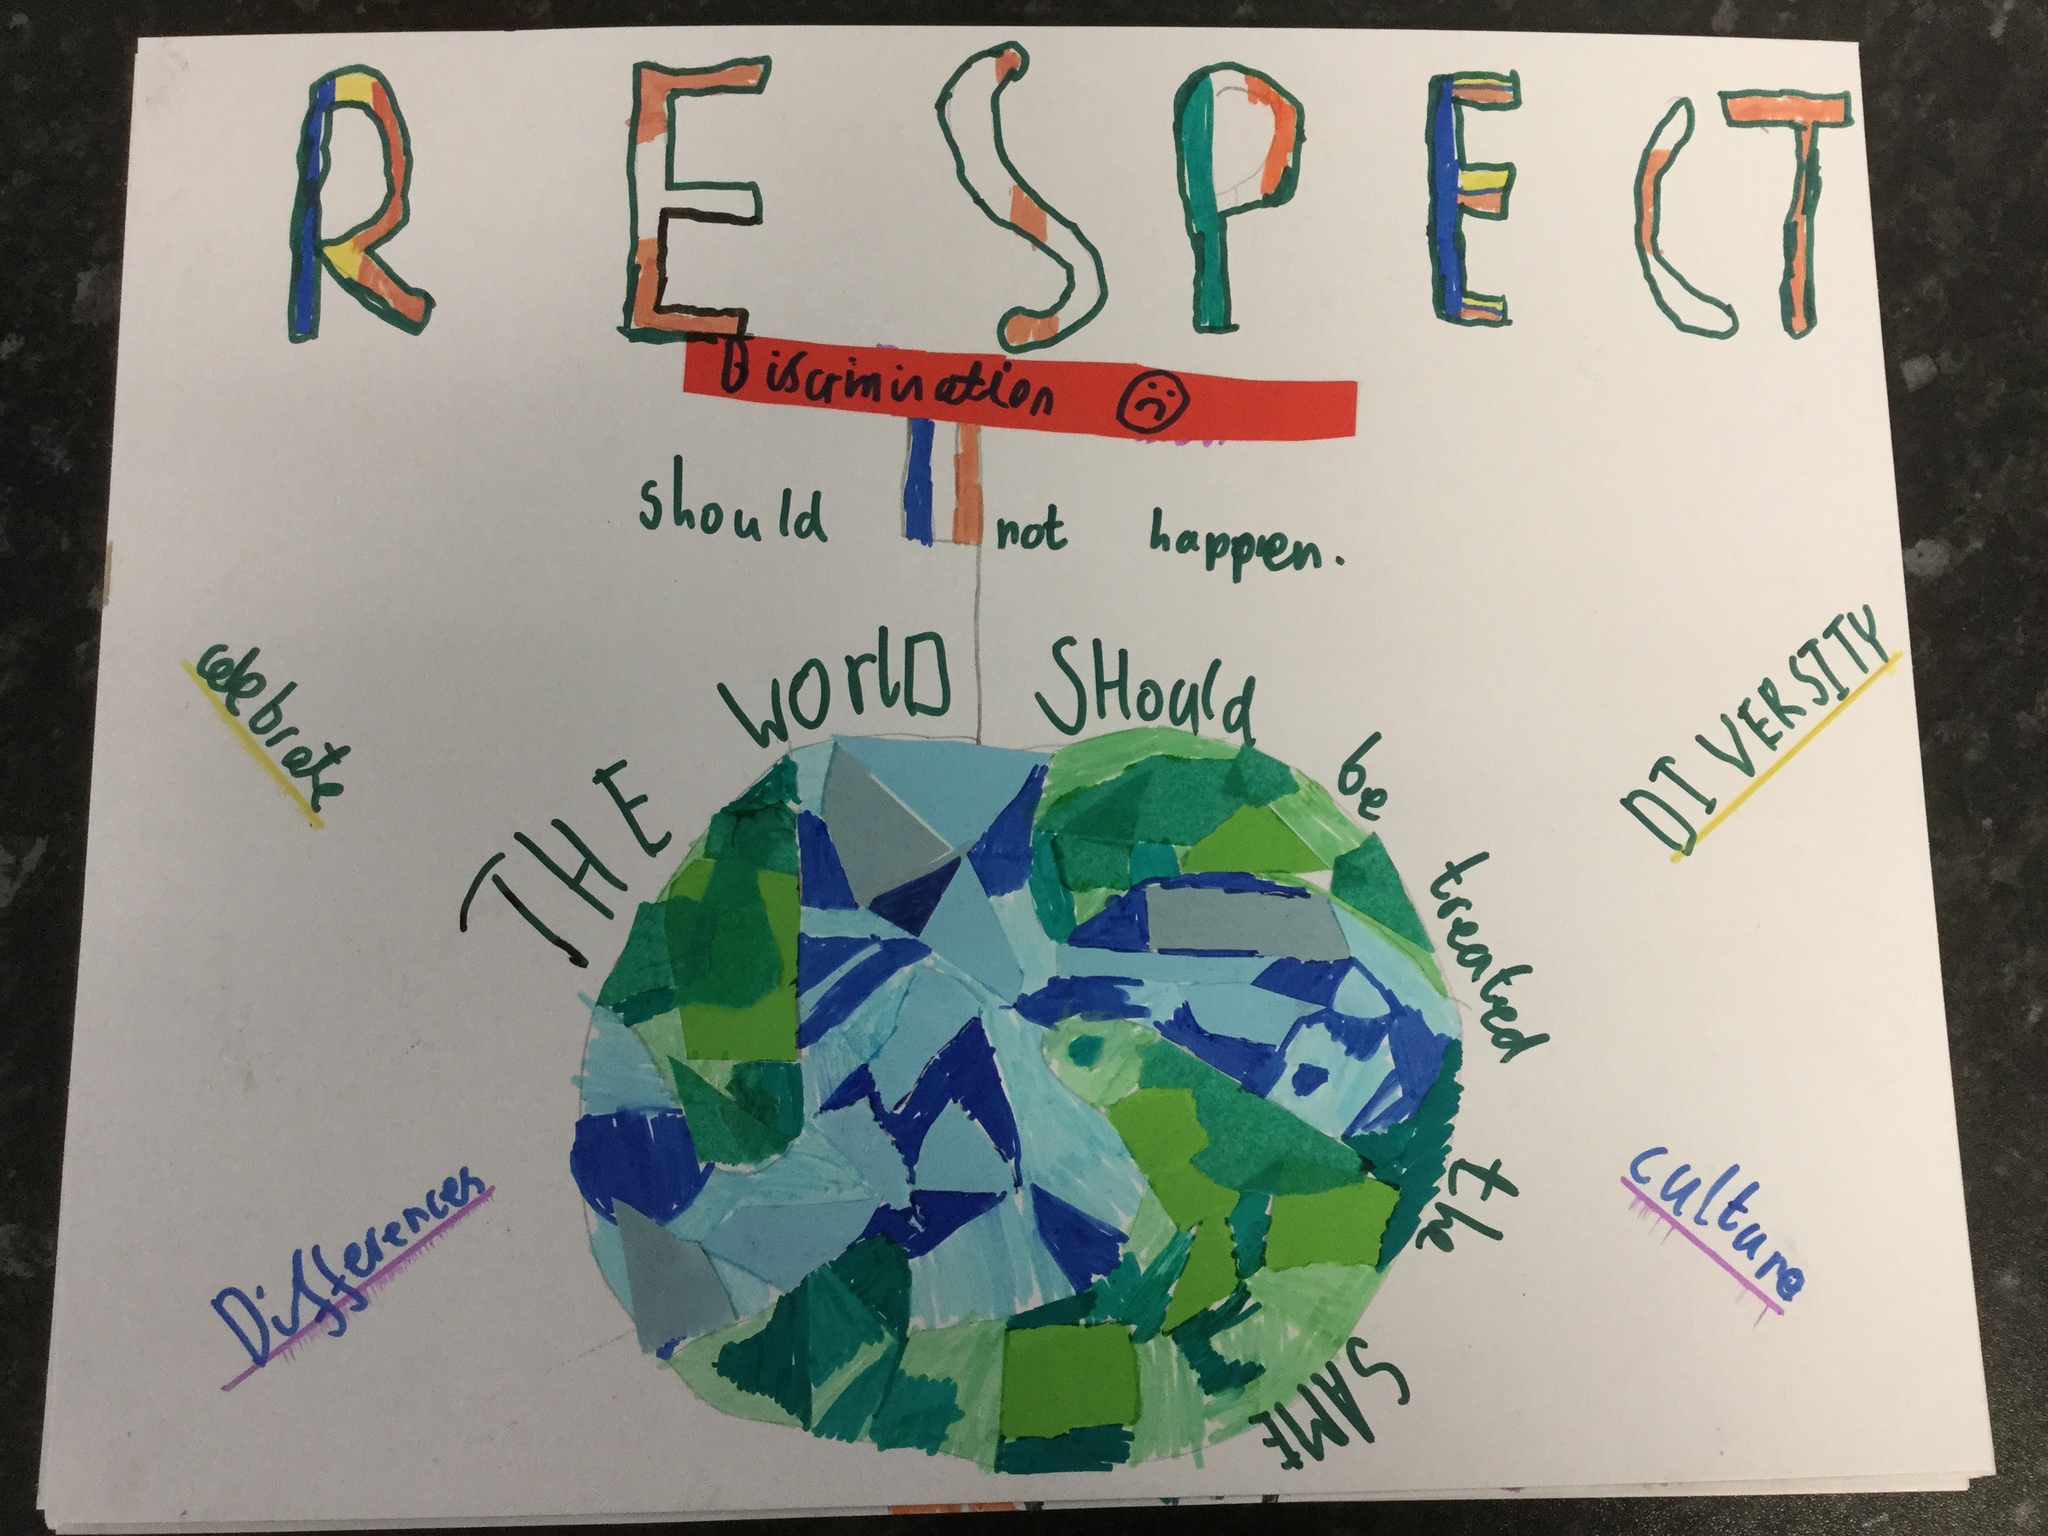 RESPECT
Discrimination
should not happen.
celebrate
DIVERSITY
THE WORlD SHould be treated the SAME
Differences
culture